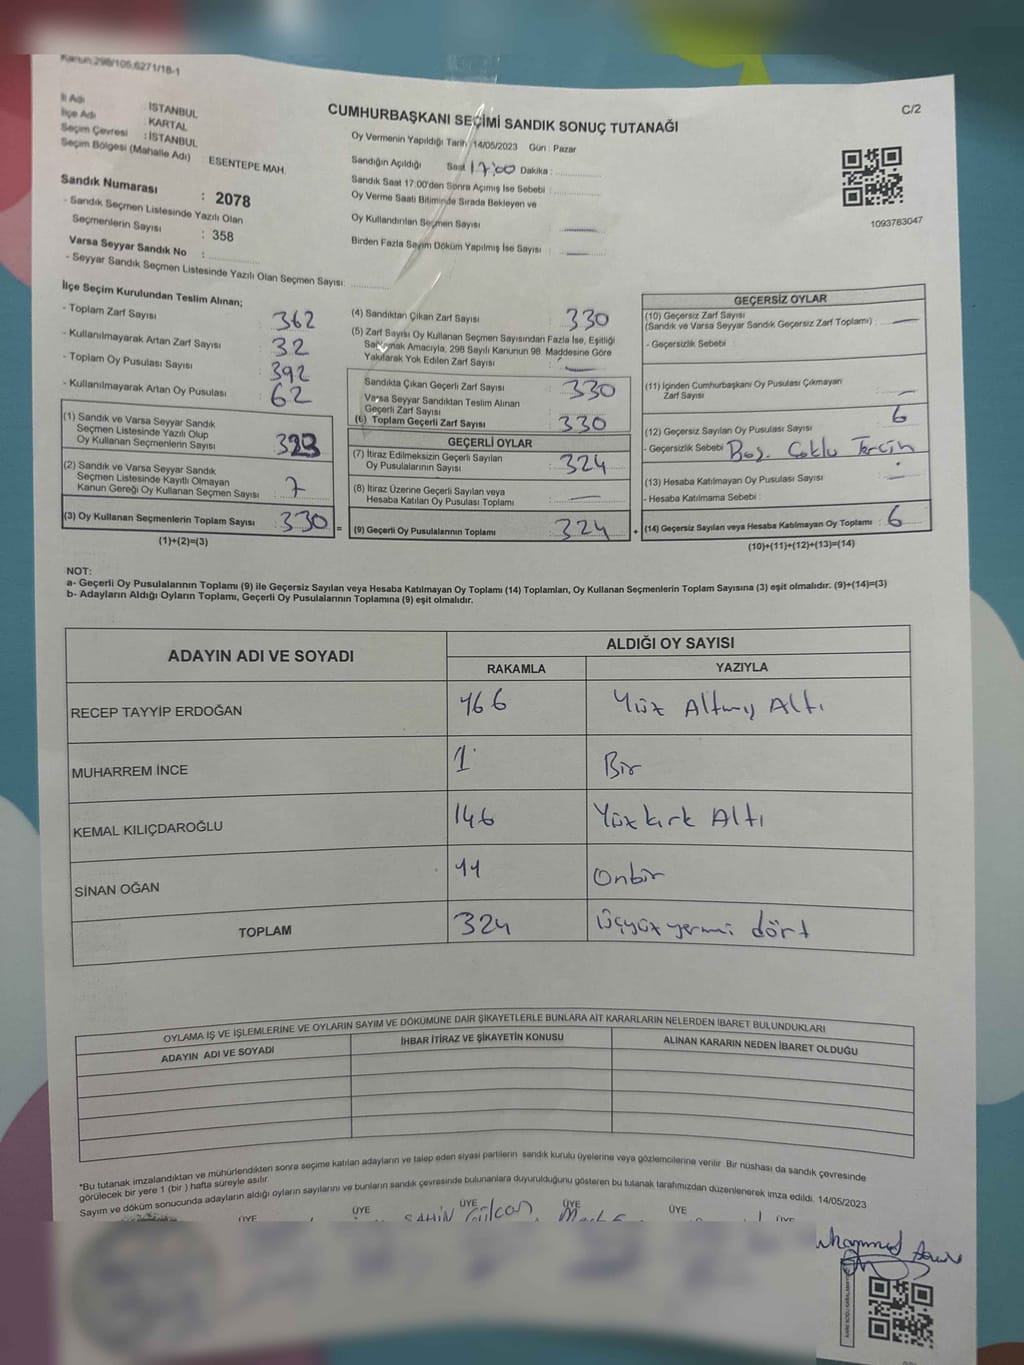 Kanun:298/105,6271/18-1
C/2
İl Adı : İSTANBUL
İlçe Adı : KARTAL
Seçim Çevresi : İSTANBUL
Seçim Bölgesi (Mahalle Adı) : ESENTEPE MAH.
CUMHURBAŞKANI SEÇİMİ SANDIK SONUÇ TUTANAĞI
Oy Vermenin Yapıldığı Tarih : 14/05/2023 Gün : Pazar
Sandığın Açıldığı Saat 17:00 Dakika :
Sandık Saat 17:00'den Sonra Açmış İse Sebebi :
Oy Verme Saati Bitiminde Sırada Bekleyen ve
Oy Kullandırılan Seçmen Sayısı :
Birden Fazla Sayım Döküm Yapılmış İse Sayısı :
1093783047
Sandık Numarası : 2078
- Sandık Seçmen Listesinde Yazılı Olan
Seçmenlerin Sayısı : 358
Varsa Seyyar Sandık No :
- Seyyar Sandık Seçmen Listesinde Yazılı Olan Seçmen Sayısı:
İlçe Seçim Kurulundan Teslim Alınan;
- Toplam Zarf Sayısı : 362
- Kullanılmayarak Artan Zarf Sayısı : 32
- Toplam Oy Pusulası Sayısı : 392
- Kullanılmayarak Artan Oy Pusulası : 62
(1) Sandık ve Varsa Seyyar Sandık
Seçmen Listesinde Yazılı Olup
Oy Kullanan Seçmenlerin Sayısı : 323
(2) Sandık ve Varsa Seyyar Sandık
Seçmen Listesinde Kayıtlı Olmayan
Kanun Gereği Oy Kullanan Seçmen Sayısı : 7
(3) Oy Kullanan Seçmenlerin Toplam Sayısı : 330
(1)+(2)=(3)
(4) Sandıktan Çıkan Zarf Sayısı : 330
(5) Zarf Sayısı Oy Kullanan Seçmen Sayısından Fazla İse, Eşitliği
Sağlamak Amacıyla, 298 Sayılı Kanunun 98. Maddesine Göre
Yakılarak Yok Edilen Zarf Sayısı : —
Sandıkta Çıkan Geçerli Zarf Sayısı : 330
Varsa Seyyar Sandıktan Teslim Alınan
Geçerli Zarf Sayısı :
(6) Toplam Geçerli Zarf Sayısı : 330
GEÇERLİ OYLAR
(7) İtiraz Edilmeksizin Geçerli Sayılan
Oy Pusulalarının Sayısı : 324
(8) İtiraz Üzerine Geçerli Sayılan veya
Hesaba Katılan Oy Pusulası Toplamı : —
(9) Geçerli Oy Pusulalarının Toplamı : 324
=
+
GEÇERSİZ OYLAR
(10) Geçersiz Zarf Sayısı
(Sandık ve Varsa Seyyar Sandık Geçersiz Zarf Toplamı) : —
- Geçersizlik Sebebi :
(11) İçinden Cumhurbaşkanı Oy Pusulası Çıkmayan
Zarf Sayısı : —
(12) Geçersiz Sayılan Oy Pusulası Sayısı : 6
- Geçersizlik Sebebi : Boş. Çoklu Tercih
(13) Hesaba Katılmayan Oy Pusulası Sayısı : —
- Hesaba Katılmama Sebebi :
(14) Geçersiz Sayılan veya Hesaba Katılmayan Oy Toplamı : 6
(10)+(11)+(12)+(13)=(14)
NOT:
a- Geçerli Oy Pusulalarının Toplamı (9) ile Geçersiz Sayılan veya Hesaba Katılmayan Oy Toplamı (14) Toplamları, Oy Kullanan Seçmenlerin Toplam Sayısına (3) eşit olmalıdır. (9)+(14)=(3)
b- Adayların Aldığı Oyların Toplamı, Geçerli Oy Pusulalarının Toplamına (9) eşit olmalıdır.
ADAYIN ADI VE SOYADI
ALDIĞI OY SAYISI
RAKAMLA YAZIYLA
RECEP TAYYİP ERDOĞAN 166 Yüz Altmış Altı
MUHARREM İNCE 1 Bir
KEMAL KILIÇDAROĞLU 146 Yüz kırk Altı
SİNAN OĞAN 11 Onbir
TOPLAM 324 üçyüz yermi dört
OYLAMA İŞ VE İŞLEMLERİNE VE OYLARIN SAYIM VE DÖKÜMÜNE DAİR ŞİKAYETLERLE BUNLARA AİT KARARLARIN NELERDEN İBARET BULUNDUKLARI
ADAYIN ADI VE SOYADI İHBAR İTİRAZ VE ŞİKAYETİN KONUSU ALINAN KARARIN NEDEN İBARET OLDUĞU
*Bu tutanak imzalandıktan ve mühürlendikten sonra seçime katılan adayların ve talep eden siyasi partilerin sandık kurulu üyelerine veya gözlemcilerine verilir. Bir nüshası da sandık çevresinde
görülecek bir yere 1 (bir) hafta süreyle asılır
Sayım ve döküm sonucunda adayların aldığı oyların sayılarını ve bunların sandık çevresinde bulunanlara duyurulduğunu gösteren bu tutanak tarafımızdan düzenlenerek imza edildi. 14/05/2023
ÜYE ÜYE ÜYE ÜYE ÜYE ÜYE
ŞAHİN Gülcan